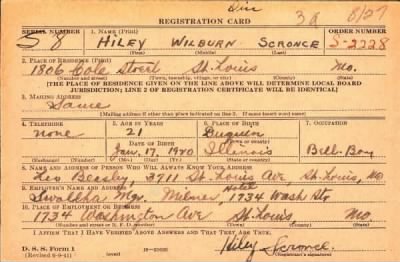 Div 3a 8/27
REGISTRATION CARD
SERIAL NUMBER 1. NAME (Print) ORDER NUMBER
S 8 HILEY WILBURN SCRONCE S-2228
(First) (Middle) (Last)
2. PLACE OF RESIDENCE (Print)
1806 Cole Street St. Louis Mo.
(Number and street) (Town, township, village, or city) (County) (State)
[THE PLACE OF RESIDENCE GIVEN ON THE LINE ABOVE WILL DETERMINE LOCAL BOARD
JURISDICTION; LINE 2 OF REGISTRATION CERTIFICATE WILL BE IDENTICAL]
3. MAILING ADDRESS
Same
[Mailing address if other than place indicated on line 2. If same insert word same]
4. TELEPHONE 5. AGE IN YEARS 6. PLACE OF BIRTH 7. OCCUPATION
none 21 Duquoin
DATE OF BIRTH
Jan. 17, 1920 Illinois Bell-Boy
(Exchange) (Number) (Mo.) (Day) (Yr.) (State or country)
8. NAME AND ADDRESS OF PERSON WHO WILL ALWAYS KNOW YOUR ADDRESS
Beasley, 3711 St. Louis Ave, St. Louis, Mo
9. EMPLOYER'S NAME AND ADDRESS
Mgr. Milner Hotel 1734 Wash Str
10. PLACE OF EMPLOYMENT OR BUSINESS
1734 Washington Ave St. Louis Mo.
(Number and street or R. F. D. number) (Town) (County) (State)
I AFFIRM THAT I HAVE VERIFIED ABOVE ANSWERS AND THAT THEY ARE TRUE.
D. S. S. Form 1
(Revised 6-9-41) (over) Hiley Scronce
(Registrant's signature)